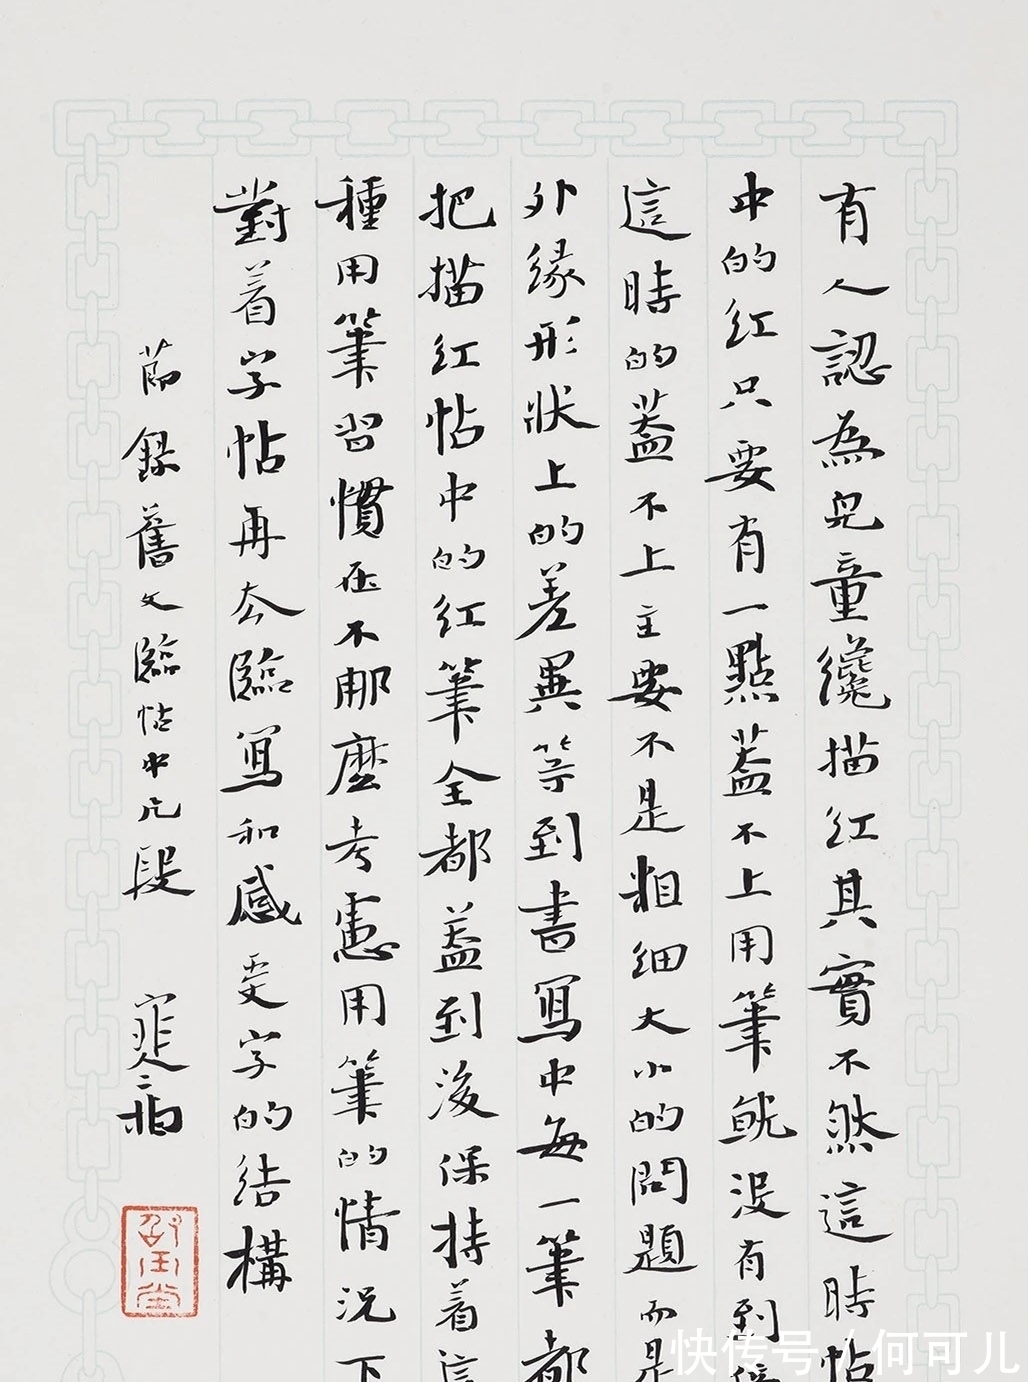 有人認為兒童纔描紅其實不然這時帖
中的紅只要有一點蓋不上用筆就沒有到
這時的蓋不上主要不是粗細大小的問題而是
外緣形狀上的差異等到書寫中每一筆都
把描紅帖中的紅筆全都蓋到後保持着這
種用筆習慣在不那麼考慮用筆的情況下
對着字帖再去臨寫和感受字的結構
節錄舊文臨帖中片段
快传号/何可儿